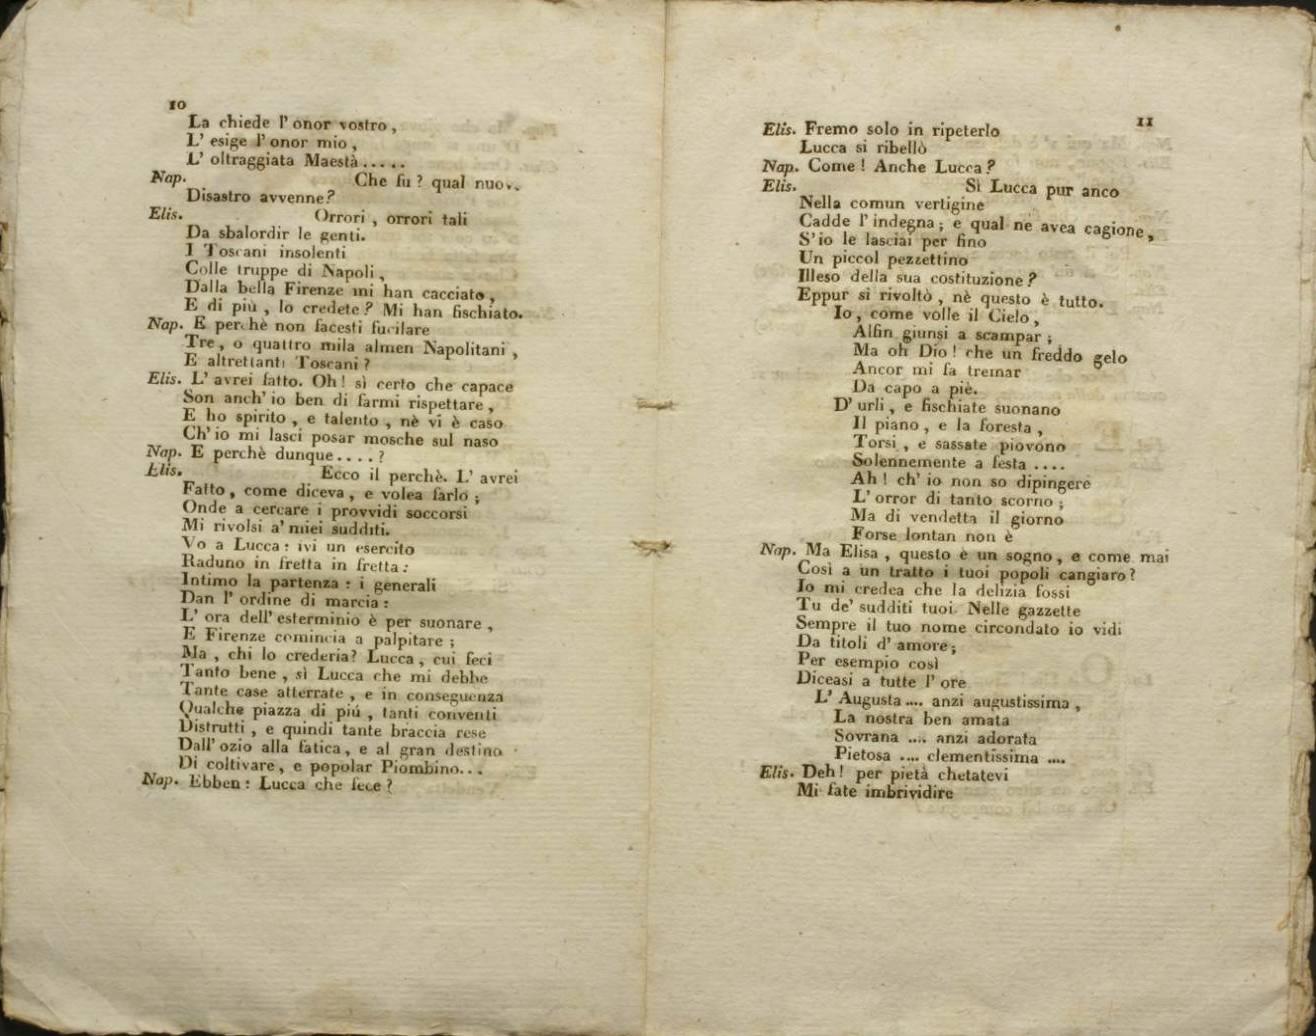 10
La chiede l' onor vostro ,
L' esige l' onor mio ,
L' oltraggiata Maestà . . . . .
Nap. Che fu ? qual nuov..
Disastro avvenne ?
Elis. Orrori , orrori tali
Da sbalordir le genti.
I Toscani insolenti
Colle truppe di Napoli ,
Dalla bella Firenze mi han cacciato ,
E di più , lo credete ? Mi han fischiato.
Nap. E perchè non facesti fucilare
Tre , o quattro mila almen Napolitani ,
E altrettanti Toscani ?
Elis. L' avrei fatto. Oh ! sì certo che capace
Son anch' io ben di farmi rispettare ,
E ho spirito , e talento , nè vi è caso
Ch' io mi lasci posar mosche sul naso
Nap. E perchè dunque . . . . ?
Elis. Ecco il perchè. L' avrei
Fatto , come diceva , e volea farlo ;
Onde a cercare i provvidi soccorsi
Mi rivolsi a' miei sudditi.
Vo a Lucca : ivi un esercito
Raduno in fretta in fretta :
Intimo la partenza : i generali
Dan l' ordine di marcia :
L' ora dell' esterminio è per suonare ,
E Firenze comincia a palpitare ;
Ma , chi lo crederia ? Lucca , cui feci
Tanto bene , sì Lucca che mi debbe
Tante case atterrate , e in conseguenza
Qualche piazza di piú , tanti conventi
Distrutti , e quindi tante braccia rese
Dall' ozio alla fatica , e al gran destino
Di coltivare , e popolar Piombino . . .
Nap. Ebben : Lucca che fece ?
11
Elis. Fremo solo in ripeterlo
Lucca si ribellò
Nap. Come ! Anche Lucca ?
Elis. Sì Lucca pur anco
Nella comun vertigine
Cadde l' indegna ; e qual ne avea cagione ,
S' io le lasciai per fino
Un piccol pezzettino
Illeso della sua costituzione ?
Eppur si rivoltò , nè questo è tutto.
Io , come volle il Cielo ,
Alfin giunsi a scampar ;
Ma oh Dio ! che un freddo gelo
Ancor mi fa tremar
Da capo a piè.
D' urli , e fischiate suonano
Il piano , e la foresta ,
Torsi , e sassate piovono
Solennemente a festa . . . .
Ah ! ch' io non so dipingere
L' orror di tanto scorno ;
Ma di vendetta il giorno
Forse lontan non è
Nap. Ma Elisa , questo è un sogno , e come mai
Così a un tratto i tuoi popoli cangiaro ?
Io mi credea che la delizia fossi
Tu de' sudditi tuoi. Nelle gazzette
Sempre il tuo nome circondato io vidi
Da titoli d' amore ;
Per esempio così
Diceasi a tutte l' ore
L' Augusta .... anzi augustissima ,
La nostra ben amata
Sovrana .... anzi adorata
Pietosa .... clementissima ....
Elis. Deh ! per pietà chetatevi
Mi fate imbrividire